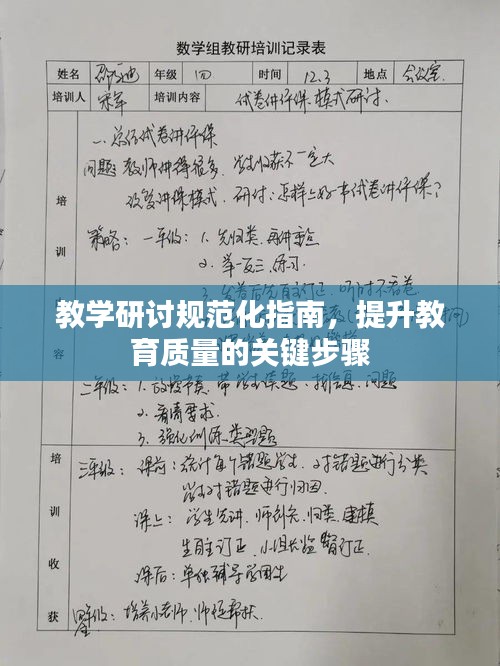 数学组教研培训记录表
姓名 年级 四 时间 12.3 地点 会议室
培训人 培训内容 试卷讲评课模式研讨.
一、总结试卷讲评课
问题 教师讲得很多. 学生收获不一定大
改变讲课模式. 研讨:怎样上好一节试卷讲评课?
策略: 一年级: 1. 先归类. 再讲重点
2. 举一反三. 练习.
3.
教学研讨规范化指南，提升教
育质量的关键步骤
培训内容
1. 放慢节奏. 带学生读题. 找信息. 问题
2. 看清要求.
3. 强化训练类型题
培训收获
三年级: 课前: 统计每个错题学生. 对错题进行分类
学生对错题进行归因.
课上: 学生先讲. 师补充. 归类. 建模
生自主订正. 小组长监督订正.
课后: 单独辅导学困生
四年级: 培养小老师. 师徒帮扶.